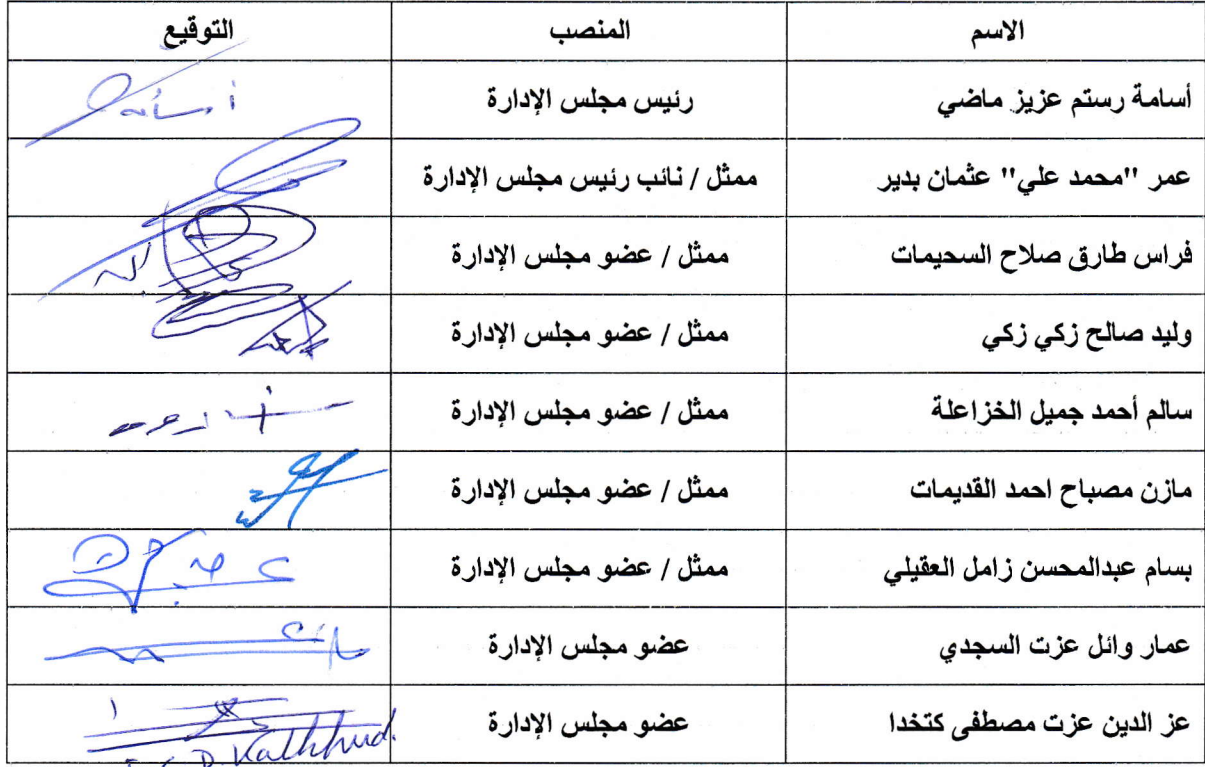 الاسم المنصب التوقيع
أسامة رستم عزيز ماضي رئيس مجلس الإدارة أسامة
عمر "محمد علي" عثمان بدير ممثل / نائب رئيس مجلس الإدارة
فراس طارق صلاح السحيمات ممثل / عضو مجلس الإدارة
وليد صالح زكي زكي ممثل / عضو مجلس الإدارة
سالم أحمد جميل الخزاعلة ممثل / عضو مجلس الإدارة
مازن مصباح احمد القديمات ممثل / عضو مجلس الإدارة
بسام عبدالمحسن زامل العقيلي ممثل / عضو مجلس الإدارة
عمار وائل عزت السجدي عضو مجلس الإدارة
عز الدين عزت مصطفى كتخدا عضو مجلس الإدارة